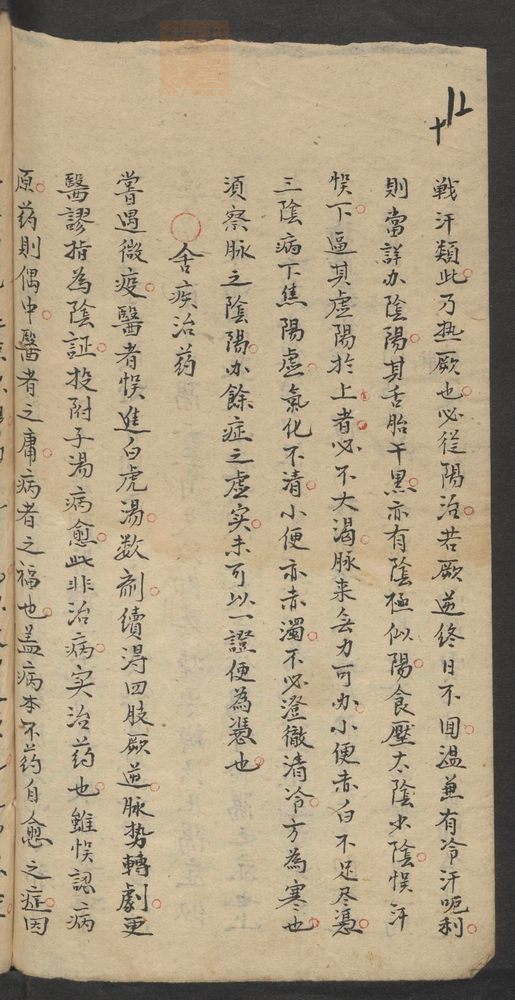 十12
戦汗類此乃热厥也必從陽治若厥逆終日不回温兼有冷汗呃利
則當詳办陰陽其舌胎干黑亦有陰極似陽食壓太陰少陰悮汗
悮下逼其虚陽扵上者必不大渴脉来無力可办小便赤白不足尽憑
三陰病下焦陽虚氣化不清小便亦赤濁不必澄徹清冷方為寒也
須察脉之陰陽办餘症之虚实未可以一證便為憑也
舍疾治药
嘗遇微疫醫者悮進白虎湯数剤續得四肢厥逆脉势轉劇更
醫謬指為陰証投附子湯病愈此非治病实治药也雖悮認病
原药則偶中醫者之庸病者之福也盖病本不药自愈之症因